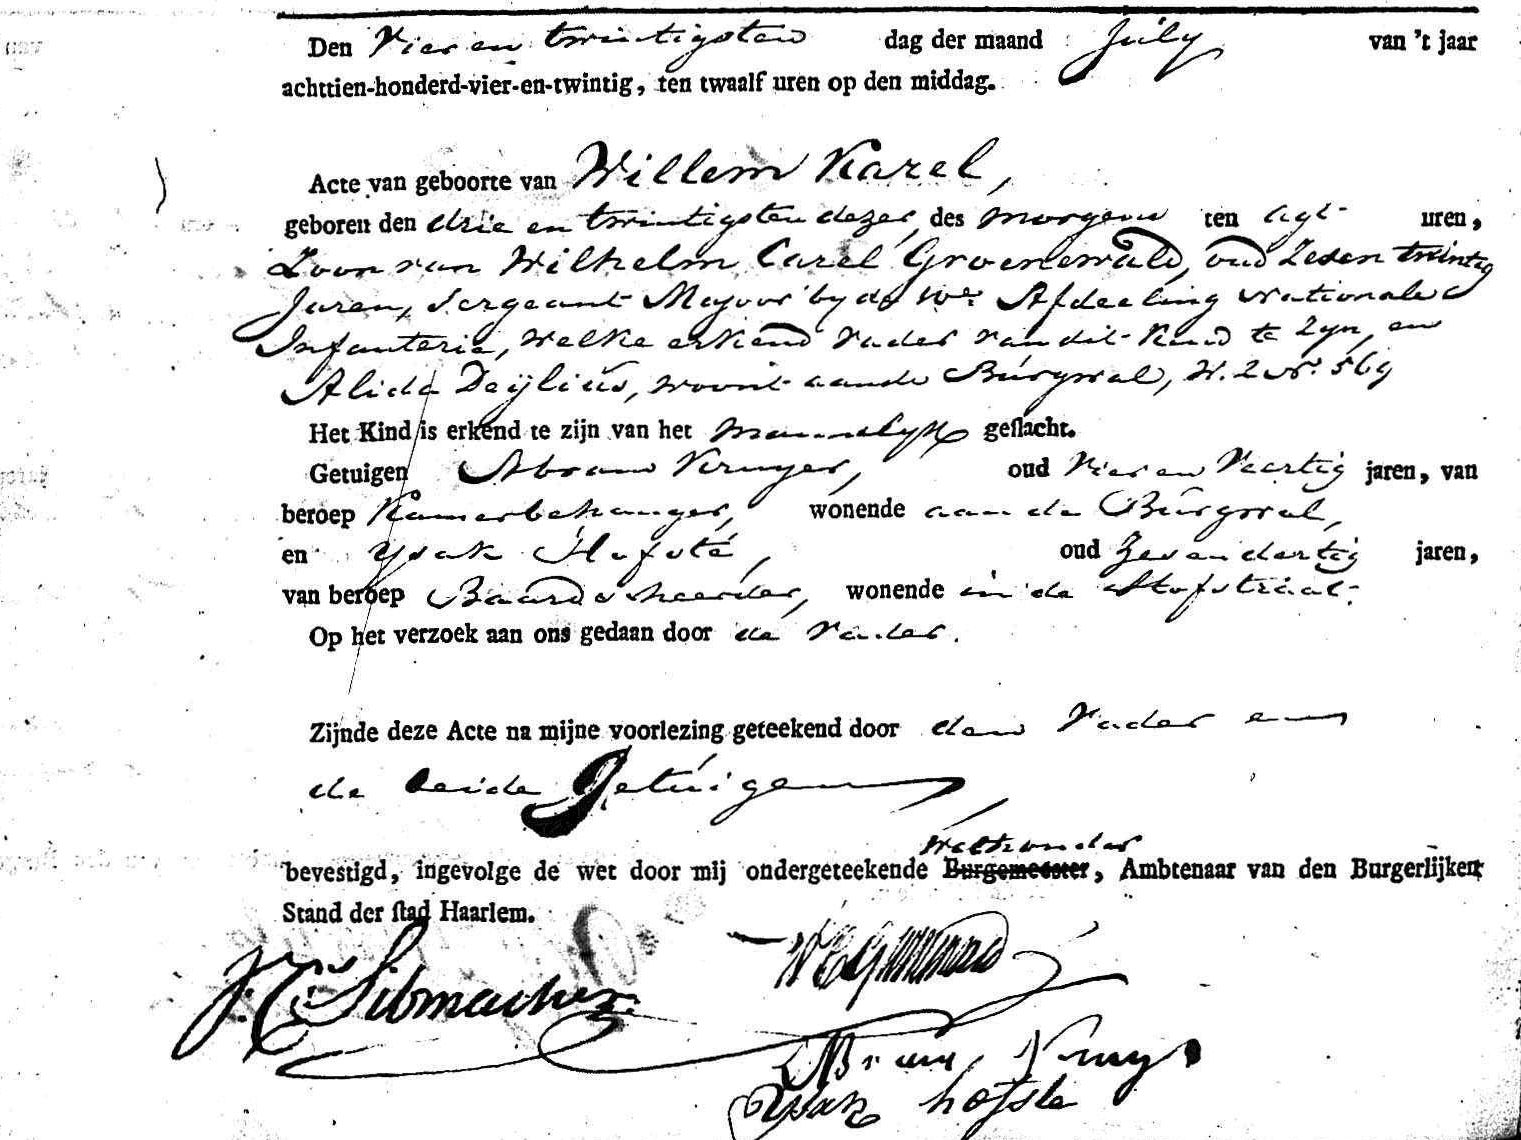 Den Vier en twintigsten dag der maand July van 't jaar
achttien-honderd-vier-en-twintig, ten twaalf uren op den middag.
Acte van geboorte van Willem Karel,
geboren den drie en twintigsten dezer, des morgens ten agt uren,
Zoon van Wilhelm Carel Groenewald, oud Zes en twintig
Jaren, Sergeant Majoor by de Afdeeling Nationale
Infanterie, welke erkend Vader van dit Kind te Zyn, en
Alida Deÿlius, woont aan de Burgwal, W. 2 No. 569
Het Kind is erkend te zijn van het mannelyk geslacht.
Getuigen Abram Kruyer, oud Vier en Veertig jaren, van
beroep Kamerbehanger, wonende aan de Burgwal,
en Ysak Hofsté, oud Zes en dertig jaren,
van beroep Baardscheerder, wonende in de Hofstraat.
Op het verzoek aan ons gedaan door de Vader.
Zijnde deze Acte na mijne voorlezing geteekend door den Vader en
de beide Getuigen
bevestigd, ingevolge de wet door mij ondergeteekende Wethouder Burgemeester, Ambtenaar van den Burgerlijken
Stand der stad Haarlem.
Sibmacher
Abram Kruy
Ysak hofste